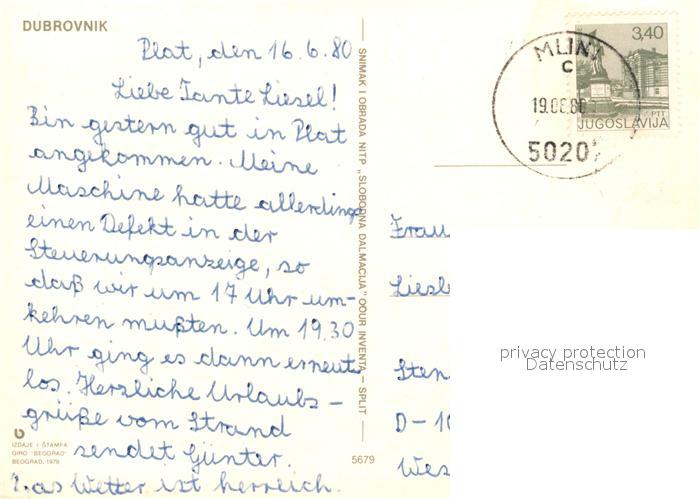 DUBROVNIK
Plat, den 16.6.80
Liebe Tante Liesel!
Bin gestern gut in Plat
angekommen. Meine
Maschine hatte allerdings
einen Defekt in der
Steuerungsanzeige, so
daß wir um 17 Uhr um-
kehren mußten. Um 19.30
Uhr ging es dann erneut
los. Herzliche Urlaubs-
grüße vom Strand
sendet Günter.
Das Wetter ist herrlich.
IZDAJE I ŠTAMPA
GIRO "BEOGRAD"
BEOGRAD, 1979
5679
SNIMAK I OBRADA NITP „SLOBODNA DALMACIJA" OOUR INVENTA – SPLIT
MLINI
C
19.06.80
5020
3,40
PTT
JUGOSLAVIJA
Frau
Liesl
Sten
D-10
Wes
privacy protection
Datenschutz